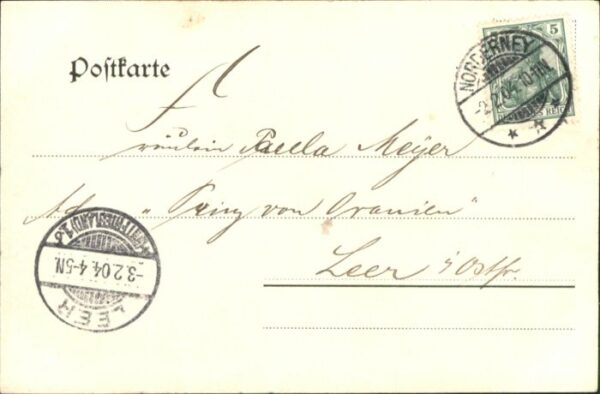 Postkarte
5
NORDERNEY
2.2.04.10-11N.
REICH
Fräulein Paula Meyer
Adr. „Prinz von Oranien"
Leer i/Ostfr.
LEER
(OSTFRIESLAND)
3.2.04.4-5N.